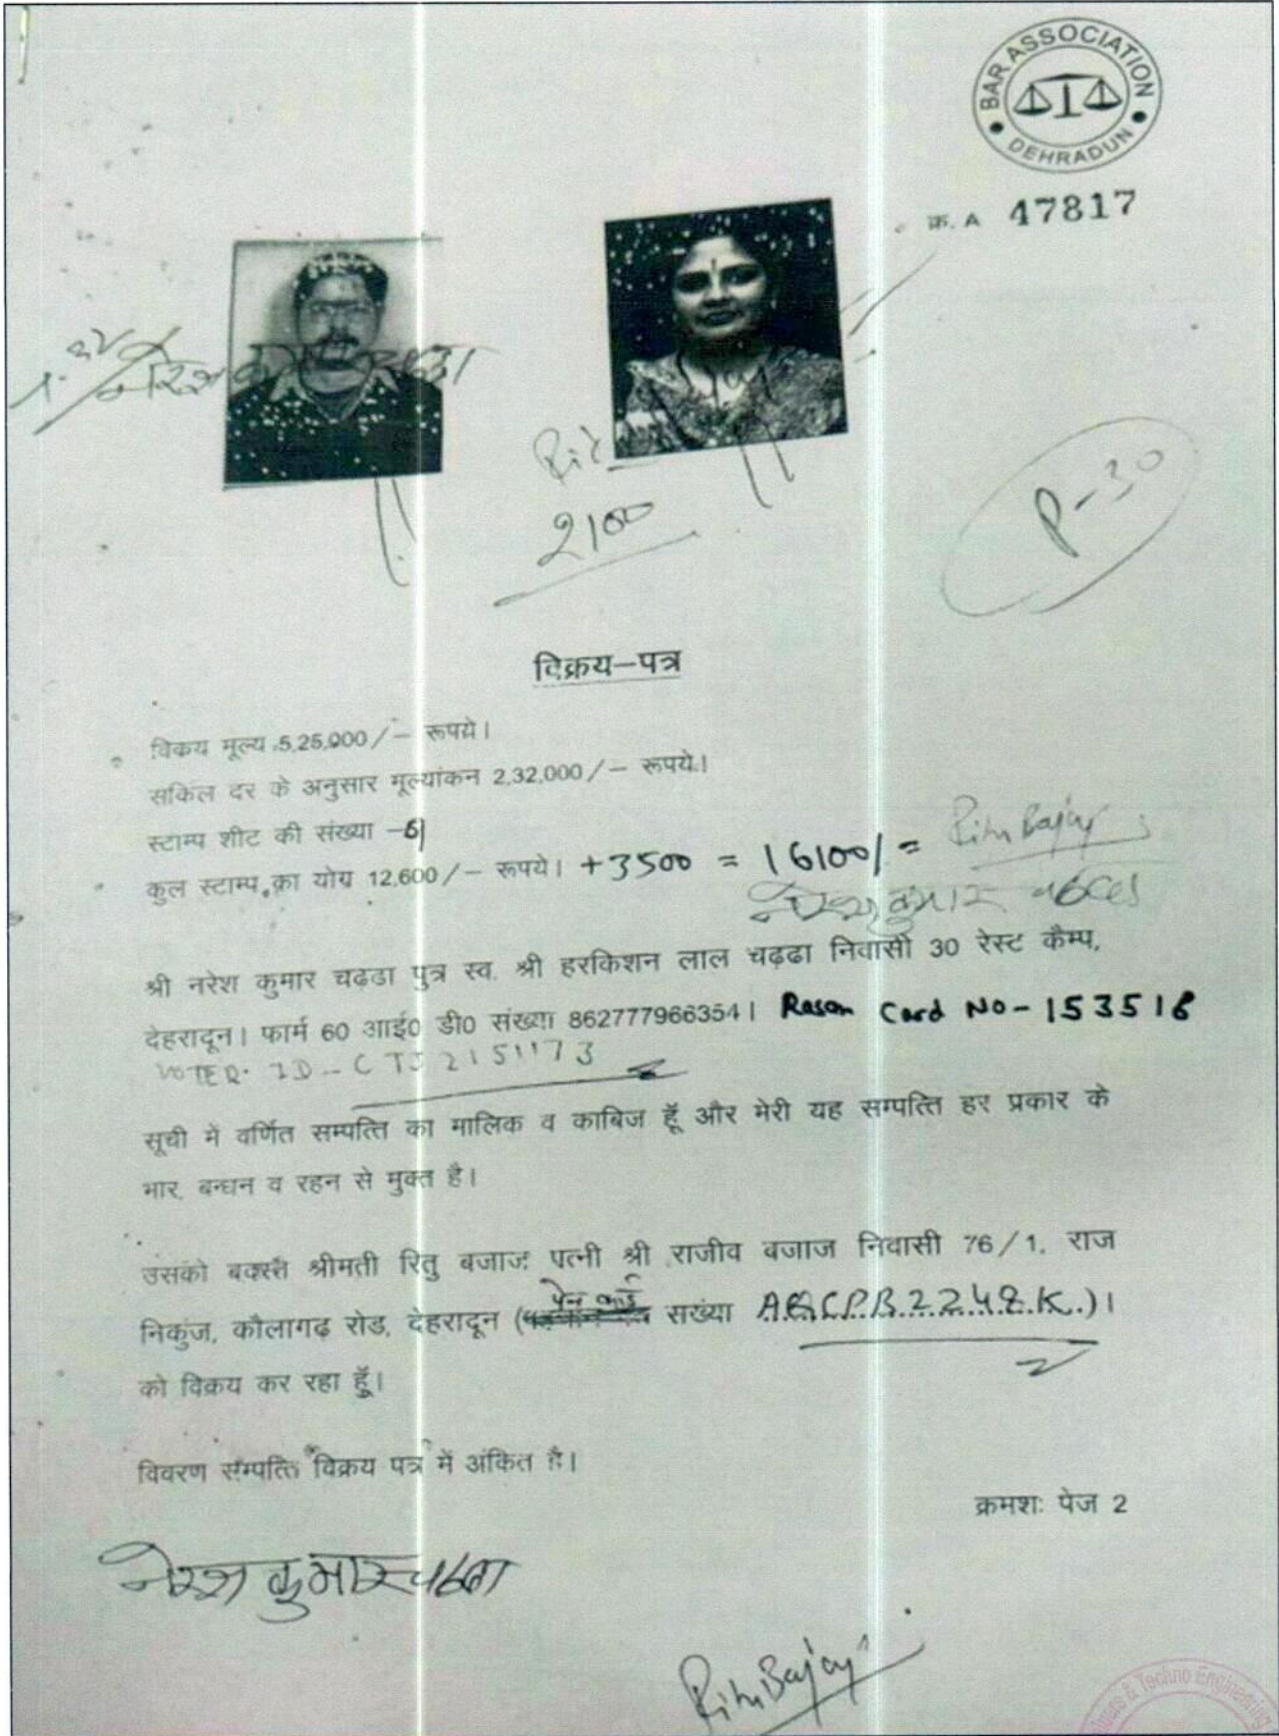 BAR ASSOCIATION
DEHRADUN
क्र. A 47817
नरेश कुमार चढ्ढा
2100
P-30
विक्रय–पत्र
विकय मूल्य 5,25,000/– रूपये।
सर्किल दर के अनुसार मूल्यांकन 2,32,000/– रूपये।
स्टाम्प शीट की संख्या –
कुल स्टाम्प का योग 12,600/– रूपये। +3500 = 16100/= Ritu Bajaj
नरेश कुमार चढ्ढा
श्री नरेश कुमार चढढा पुत्र स्व. श्री हरकिशन लाल चढ़ढा निवासी 30 रेस्ट कैम्प,
देहरादून। फार्म 60 आई0 डी0 संख्या 862777966354। Rason Card No-153516
VOTER. ID-CTJ2151173
सूची में वर्णित सम्पत्ति का मालिक व काबिज हूँ और मेरी यह सम्पत्ति हर प्रकार के
भार, बन्धन व रहन से मुक्त है।
उसको बकस्त श्रीमती रितु बजाज पत्नी श्री राजीव बजाज निवासी 76/1, राज
निकुंज, कौलागढ़ रोड, देहरादून (पेन कार्ड सख्या
को विक्रय कर रहा हूँ।
विवरण सम्पत्ति विक्रय पत्र में अंकित है।
क्रमशः पेज 2
नरेश कुमार चढ्ढा
Ritu Bajaj
& Techno Engineering